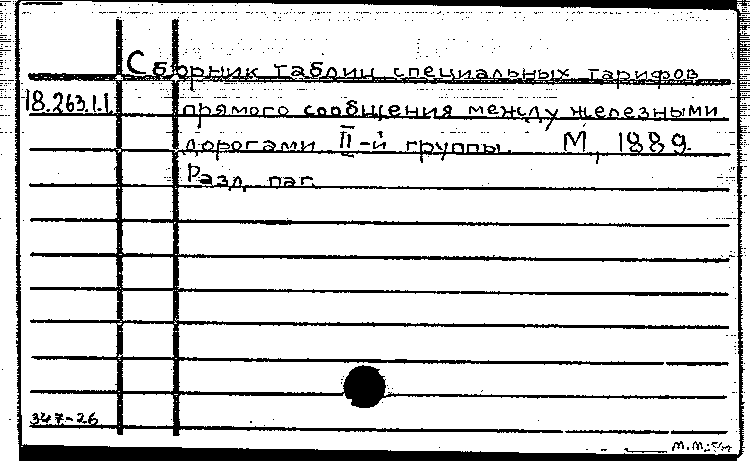 Сборник таблиц специальных тарифов
18.263.1.1. прямого сообщения между железными
дорогами II-й группы. М., 1889.
Разд. паг.
347-26
М.М.